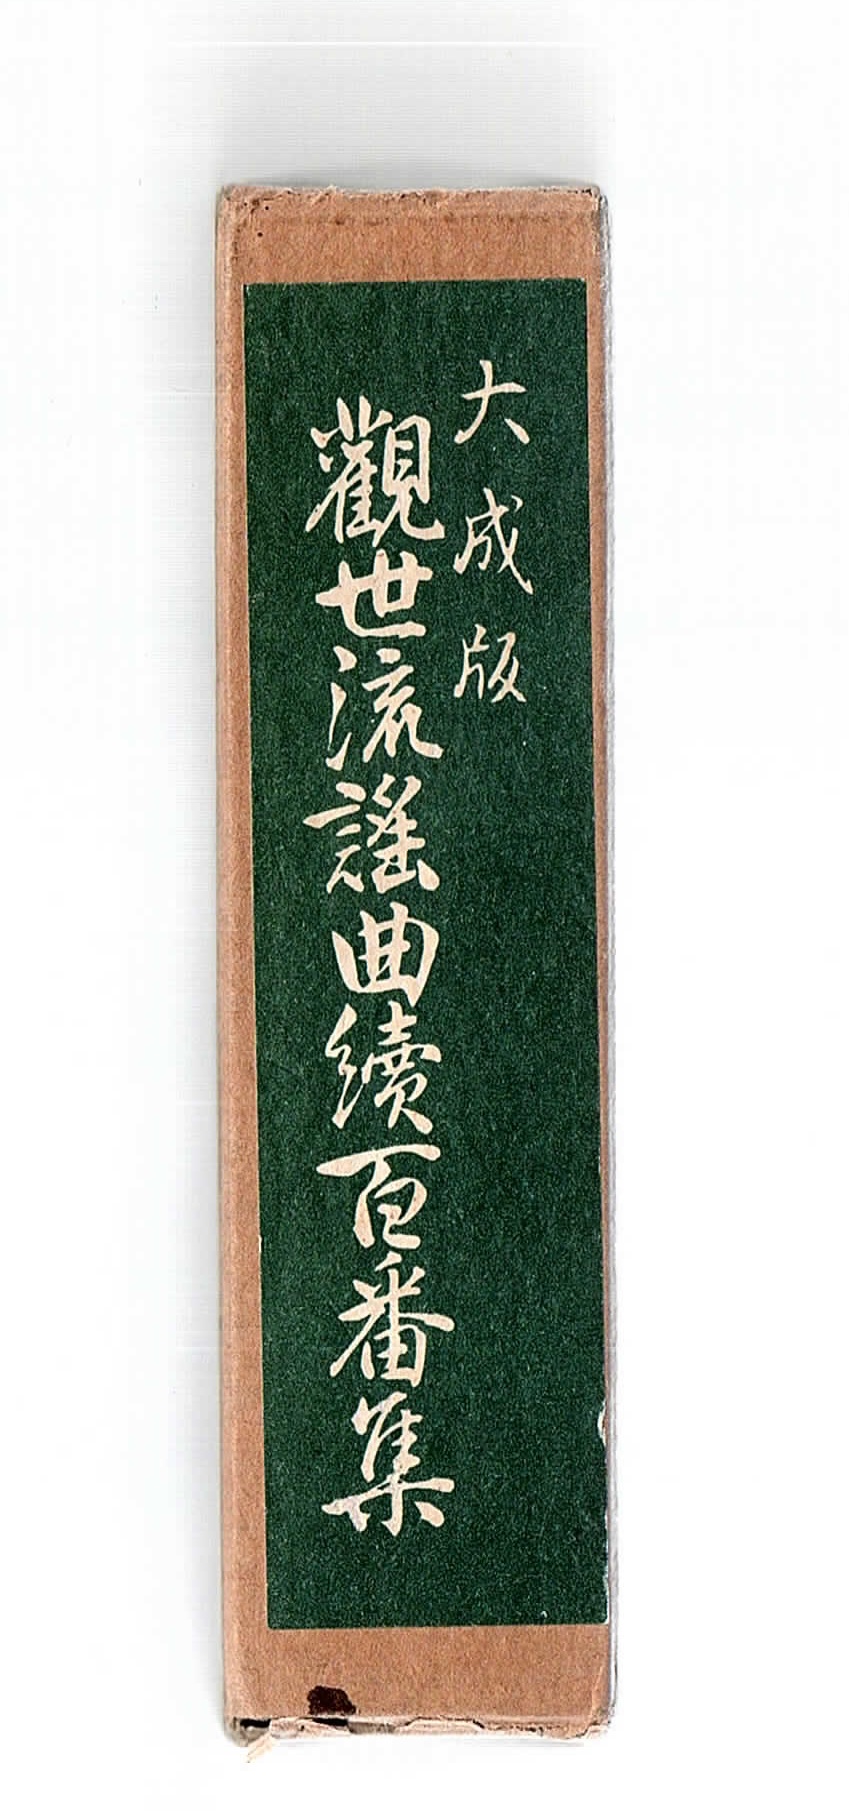 大成版
觀世流謡曲續百番集